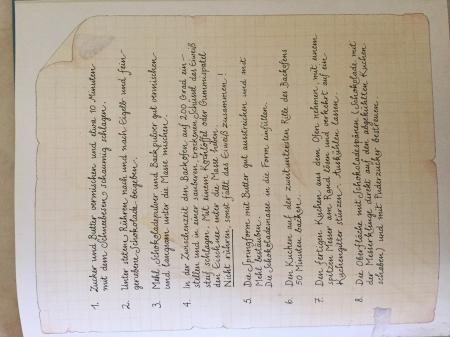 1. Zucker und Butter vermischen und etwa 10 Minuten
mit dem Schneebesen schaumig schlagen.
2. Unter stetem Rühren nach und nach Eigelb und fein
geriebene Schokolade beigeben.
3. Mehl, Schokoladepulver und Backpulver gut vermischen
und langsam unter die Masse mischen.
4. In der Zwischenzeit den Backofen auf 200 Grad ein-
stellen und in einer sauberen, trockenen Schüssel das Eiweiß
steif schlagen. Mit einem Kochlöffel oder Gummispatel
den Eischnee unter die Masse heben.
Nicht rühren, sonst fällt das Eiweiß zusammen!
5. Die Springform mit Butter gut ausstreichen und mit
Mehl bestäuben.
Die Schokolademasse in die Form einfüllen.
6. Den Kuchen auf der zweituntersten Rille des Backofens
50 Minuten backen.
7. Den fertigen Kuchen aus dem Ofen nehmen, mit einem
spitzen Messer am Rand lösen und verkehrt auf ein
Kuchengitter stürzen. Auskühlen lassen.
8. Die Oberfläche mit Schokoladespänen (Schokolade mit
der Messerklinge direkt auf den abgekühlten Kuchen
schaben) und mit Puderzucker bestreuen.